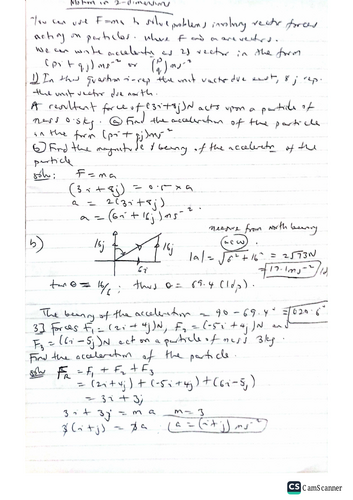 Motion in 2-dimensions
You can use F=ma to solve problems involving vector forces
acting on particles. where F and a are vectors.
We can write acceleratn as 2D vector in the form
(pi + qj) ms⁻² or (p q) ms⁻²
1) In this question i rep the unit vector due east, & j rep.
the unit vector due north.
A resultant force of (3i+8j)N acts upon a particle of
mass 0.5kg. (a) Find the acceleration of the particle
in the form (pi + qj)ms⁻²
(b) Find the magnitude & bearing of the acceleratn of the
particle
soln: F = ma
(3i + 8j) = 0.5 × a
a = 2(3i+8j)
a = (6i + 16j) ms⁻².
measure from north bearing
b) 16j 16j |a| = √6²+16² = 2√73N
6i = 17.1ms⁻²
tan θ = 16/6; thus θ = 69.4 (1dp).
The bearing of the acceleration = 90 - 69.4° = 020.6°
3] Forces F₁ = (2i + 4j)N, F₂ = (-5i + 4j)N and
F₃ = (6i - 5j)N act on a particle of mass 3kg.
Find the acceleration of the particle.
soln F_R = F₁ + F₂ + F₃
= (2i+4j) + (-5i+4j) + (6i-5j)
= 3i + 3j
3i + 3j = m a m = 3
3(i+j) = 3a (a = (i+j) ms⁻²
CS CamScanner